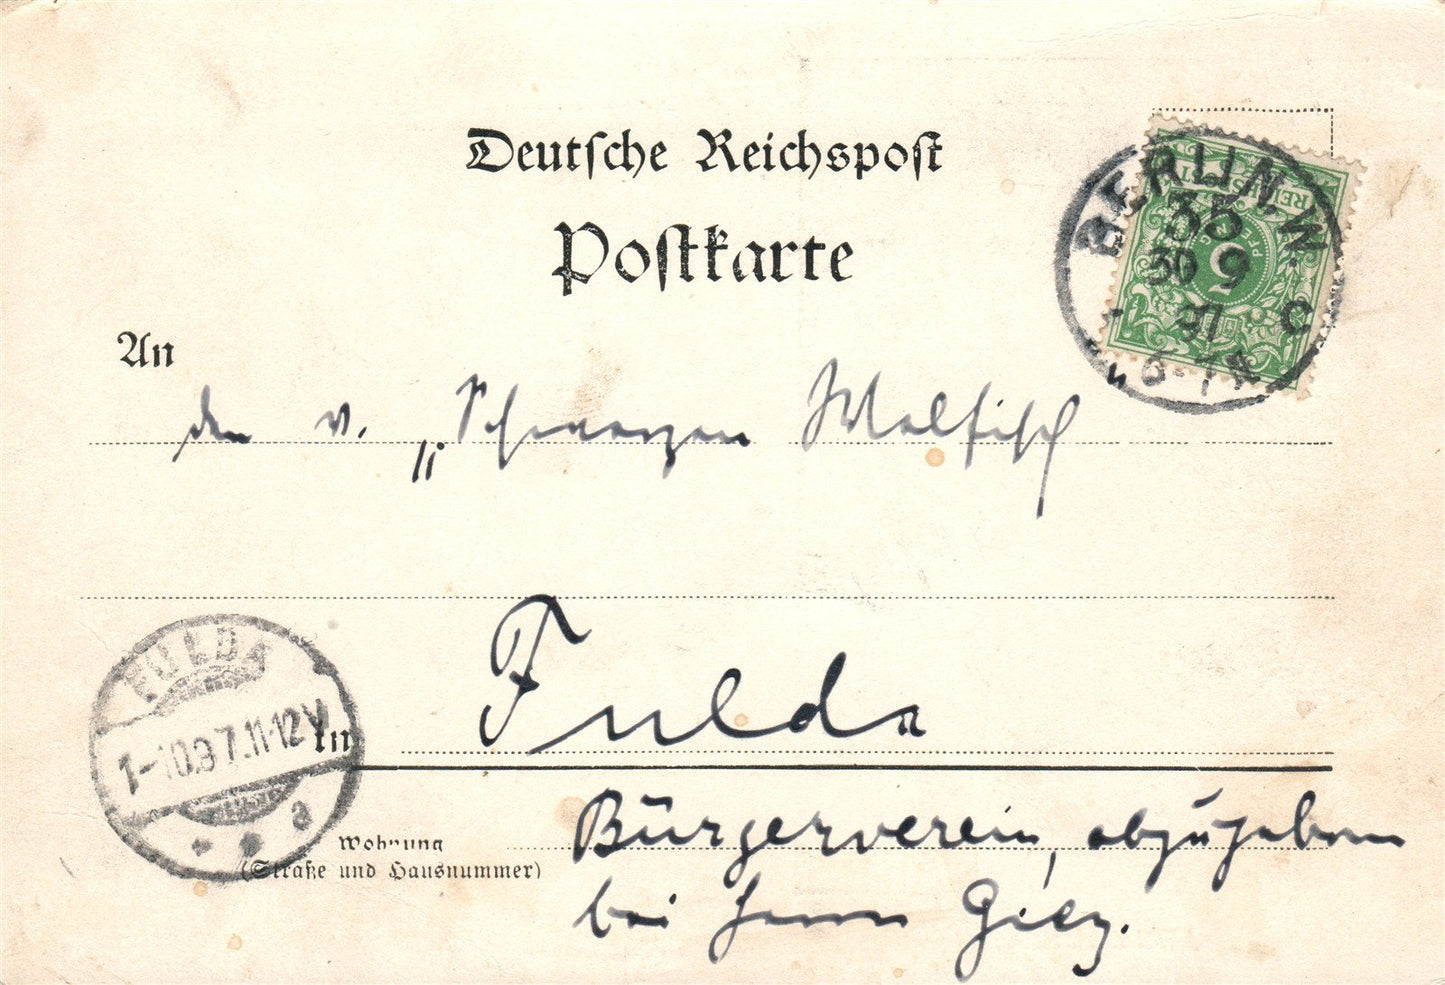 Deutsche Reichspost
Postkarte
BERLIN, W.
35
30 9
97
6-7N
C
REICHSPOST
5
An
den v. „Schwarzen Walfisch
FULDA
1-10.97.11-12V
a
in
Fulda
Wohnung
(Straße und Hausnummer)
Bürgerverein, abzugeben
bei Herrn